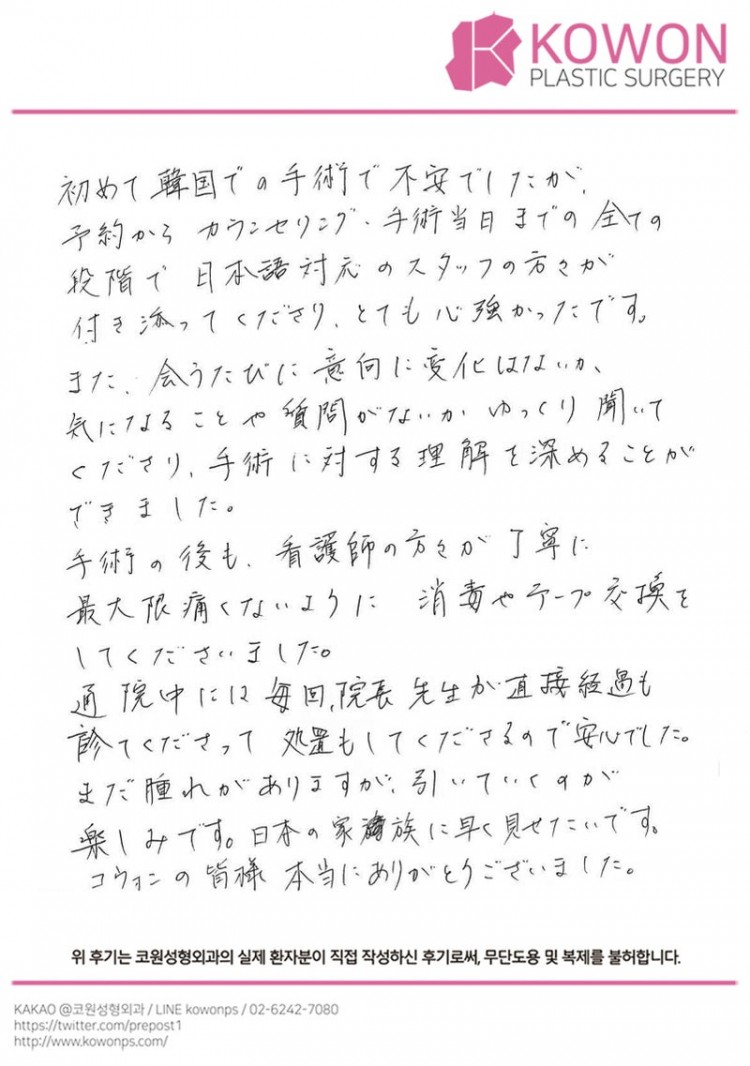 KOWON
PLASTIC SURGERY
初めて韓国での手術で不安でしたが、
予約から カウンセリング・手術当日までの全ての
段階で 日本語対応のスタッフの方々が
付き添ってくださり、とても心強かったです。
また、会うたびに意向に変化はないか、
気になることや質問がないか ゆっくり聞いて
くださり、手術に対する理解を深めることが
できました。
手術の後も、看護師の方々が丁寧に
最大限痛くないように 消毒やテープ交換を
してくださいました。
通院中には毎回、院長先生が直接経過も
診てくださって 処置もしてくださるので安心でした。
まだ腫れがありますが、引いていくのが
楽しみです。日本の家族に早く見せたいです。
コウォンの皆様 本当にありがとうございました。
위 후기는 코원성형외과의 실제 환자분이 직접 작성하신 후기로써, 무단도용 및 복제를 불허합니다.
KAKAO @코원성형외과 / LINE kowonps / 02-6242-7080
https://twitter.com/prepost1
http://www.kowonps.com/